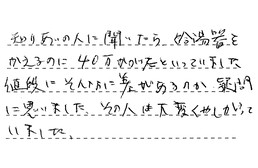 知りあいの人に聞いたら 給湯器を
かえるのに 40万かかったといっていました
値段にそんなに差があるのか 疑問
に思いました。その人は大変くやしがって
いました。